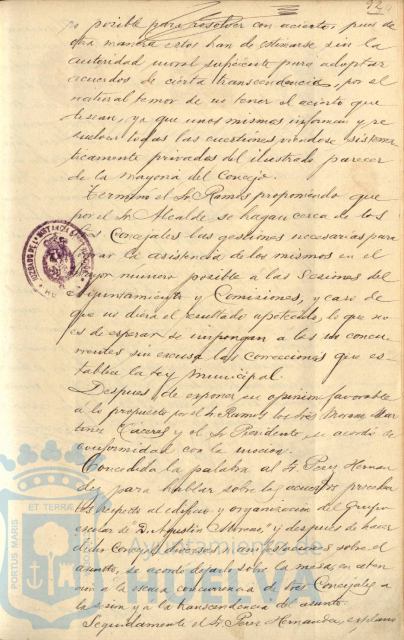 posible para resolver con acierto, pues de
otra manera estos han de estimarse sin la
autoridad moral suficiente para adoptar
acuerdos de cierta transcendencia, por el
natural temor de no tener el acierto que
desean, ya que unos mismos informan y re
suelven todas las cuestiones viendose sistema
ticamente privados del ilustrado parecer
de la mayoria del Concejo.
Terminó el Sr. Ramos proponiendo que
por el Sr. Alcalde se hagan cerca de los
Sres. Concejales las gestiones necesarias para
la asistencia de los mismos en el
mayor numero posible a las Sesiones del
Ayuntamiento y Comisiones, y caso de
que no diera el resultado apetecido, lo que no
es de esperar se impongan a los no concu
rrentes sin excusa las correcciones que es-
tablece la Ley municipal.
Despues de exponer su opinion favorable
a lo propuesto por el Sr. Ramos los Sres Moreno Mar
tinez Caceres y el Sr. Presidente se acordó de
conformidad con la mocion.
Concedida la palabra al Sr. Perez Hernan
dez para hablar sobre los acuerdos
respecto al edificio y organización del Grupo
escolar de "D. Agustin Moreno", y despues de hacer
Concejal diversas manifestaciones sobre el
asunto, se acordó dejarlo sobre la mesa en aten
cion a la escasa concurrencia de Sres Concejales a
la sesion y a la transcendencia del asunto.
Seguidamente el Sr. Perez Hernandez
PORTUS MARIS
ET TERRAE
Ayuntamiento de
HUELVA